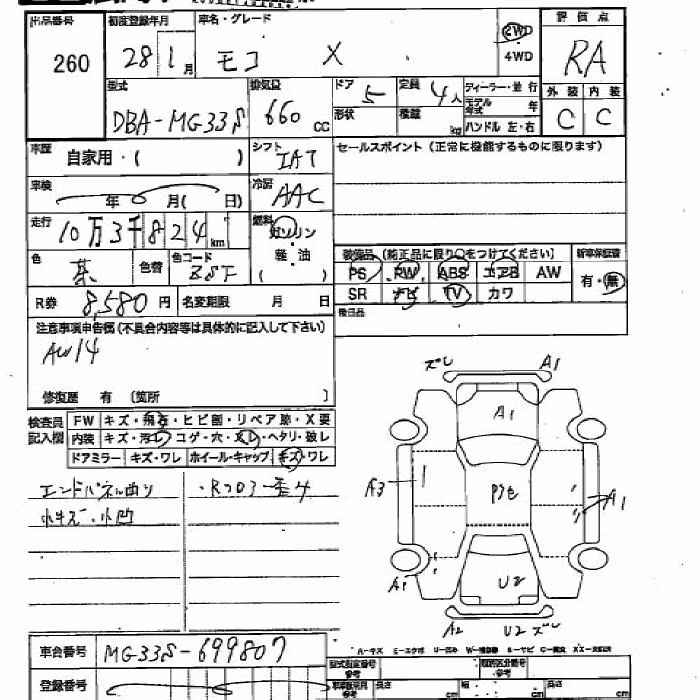 出品番号 初度登録年月 車名・グレード 評価点
260 28 1月 モコ X 2WD 4WD RA
型式 排気量 ドア 定員 ディーラー・並行 外装 内装
DBA-MG33S 660 cc 5 4人 モデル年式 年 C C
形状 積載 kg ハンドル 左・右
車歴 自家用・( ) シフト IAT セールスポイント(正常に機能するものに限ります)
車検 年 月( 日) 冷房 AAC
走行 10万3千824km 燃料 ガソリン
軽・油
( )
色 茶 色替 色コード ZSF
装備品(純正品に限り○をつけてください) 新車保証書
PS PW ABS エアB AW 有・無
SR ナビ TV カワ
R券 8,580円 名変期限 月 日
後日品
注意事項申告欄(不具合内容等は具体的に記入して下さい)
AW14
修復歴 有〔箇所 〕
検査員記入欄 FW キズ・飛石・ヒビ割・リペア跡・X要
内装 キズ・汚レ・コゲ・穴・スレ・ヘタリ・破レ
ドアミラー キズ・ワレ ホイールキャップ キズ・ワレ
エンドパネル曲り
小キズ・小凹
ズレ A1
A1
A3
A1
A1 U2
A2 U2 ズレ
A-キズ E-エクボ U-凹み
車台番号 MG33S-699807
登録番号
型式指定番号 参考 類別区分番号 参考
長さ cm 幅 cm 高さ cm